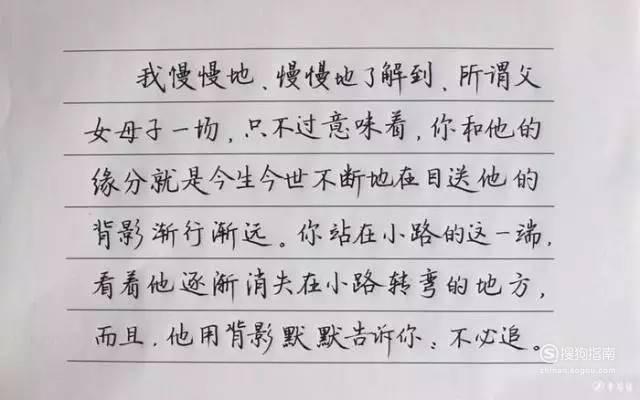 我慢慢地、慢慢地了解到，所谓父
女母子一场，只不过意味着，你和他的
缘分就是今生今世不断地在目送他的
背影渐行渐远。你站在小路的这一端，
看着他逐渐消失在小路转弯的地方，
而且，他用背影默默告诉你：不必追。
搜狗指南
zhinan.sogou.com